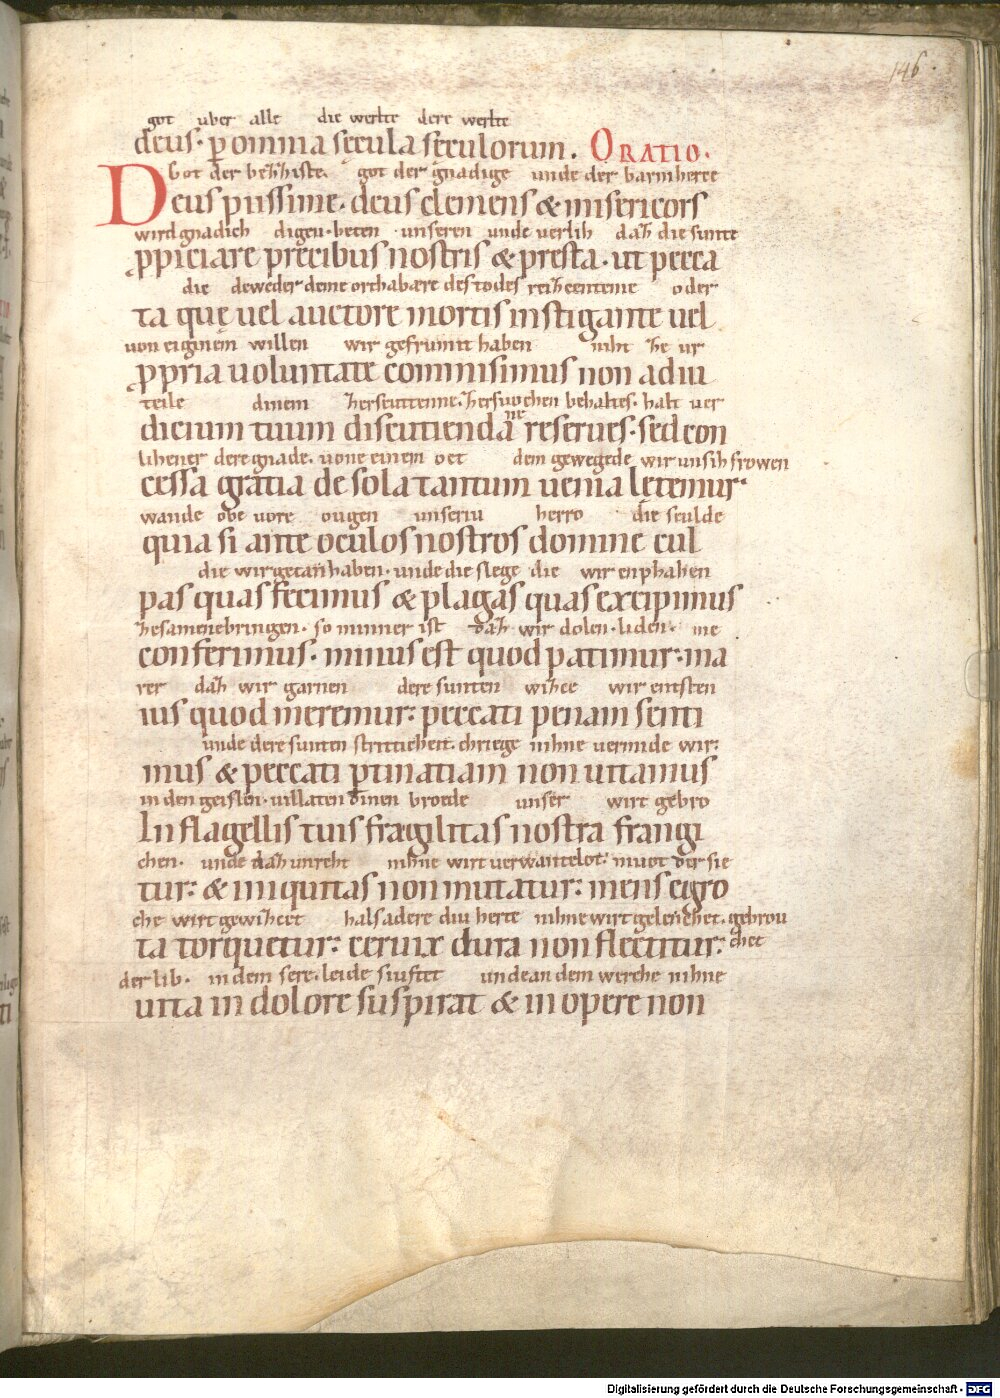 146
got uber alle die werlte dere werlte
deus· p omnia secula seculorum. ORATIO·
Got der beȥhiste. got der gnadige unde der barmherce
Deus piissime· deus clemens & misericors
wird gnadich digen·beten ·unseren unde verlih daȥ die sunte
ppiciare precibus nostris & presta· ut pecca
die deweder deme orthabare des todes reiȥcenteme oder
ta quę uel auctore mortis instigante uel
von eiginem willen wir gefrumit haben niht ȥe ur
ppria uoluntate commisimus non ad iu
teile dinem ȥerscuttenne·ȥersuochen behaltes· halt ver
ne
dicium tuum discutienda reserues· sed con
lihener dere gnade· vone einem oet dem gewegede wir unsih frowen
cessa gratia de sola tantum uenia lętemur·
wande obe vore ougen unseriu herro die sculde
quia si ante oculos nostros domine cul
die wir getan haben· unde die slege die wir enphahen
pas quas fecimus & plagas quas excipimus
ȥesamene bringen· so minner ist daȥ wir dolen·liden· me
conferimus· minus est quod patimur· ma
rer daȥ wir garnen dere sunten wiȥce wir entsten
ius quod meremur: peccati penam senti
unde dere sunten stritticheit·chriege nihne vermide wir:
mus & peccati ptinatiam non uitamus
in den geislen·villaten dinen broede unser wirt gebro
In flagellis tuis fragilitas nostra frangi
chen· unde daȥ unreht nihne wirt verwantelot: muot der sie
tur: & iniquitas non mutatur: mens egro
che wirt gewiȥcet halsadere diu herte nihne wirt gelenchet· gebrou
chet
ta torquetur: ceruix dura non flectitur:
der lib· in dem sere·leide siuftet unde an dem werche nihne
uita in dolore suspirat & in opere non
Digitalisierung gefördert durch die Deutsche Forschungsgemeinschaft - DFG